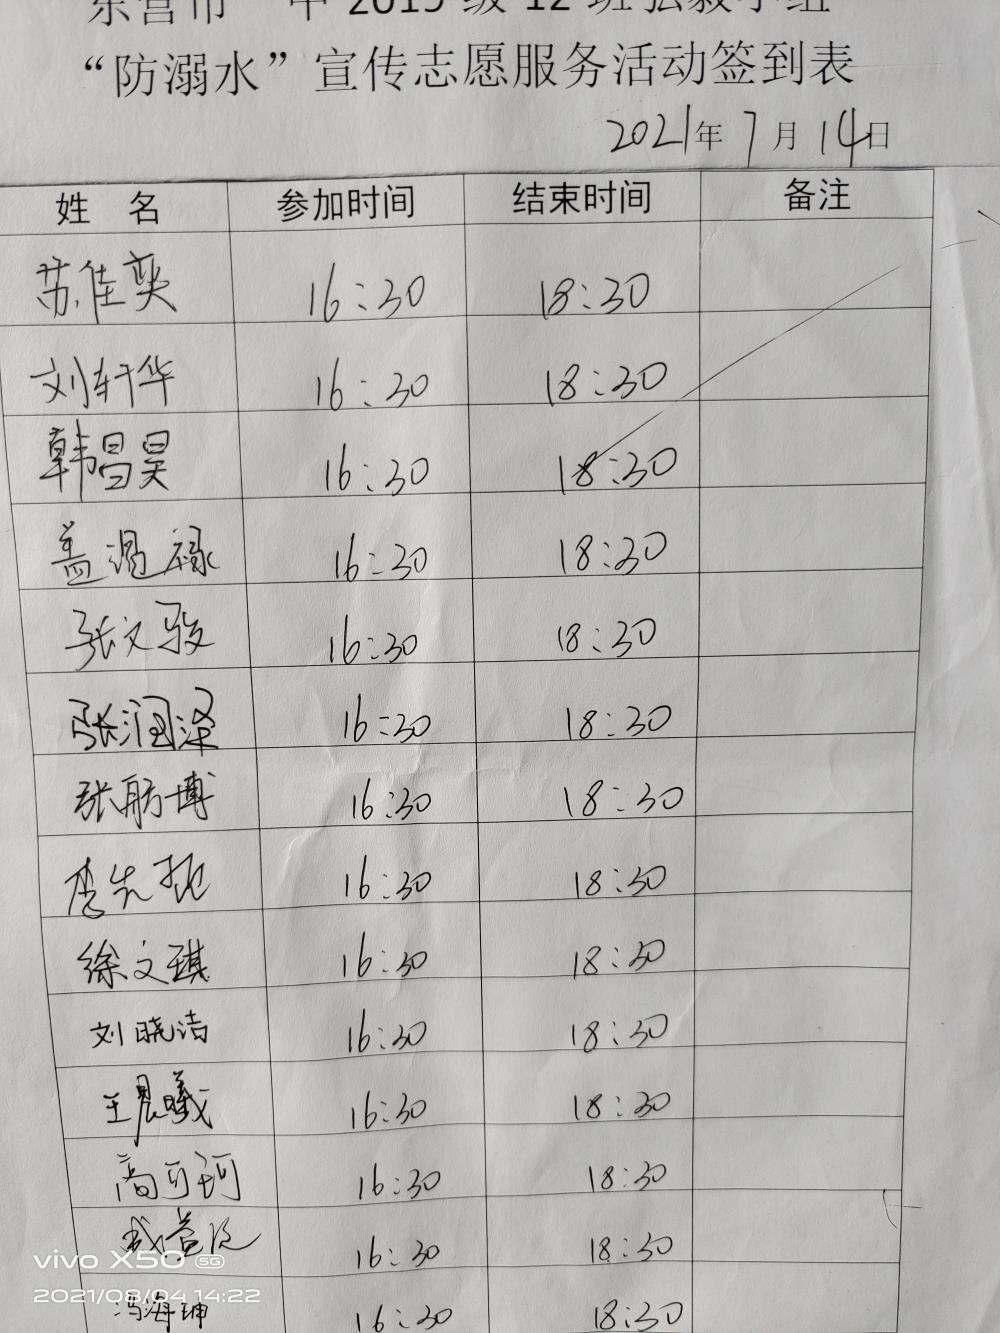 “防溺水”宣传志愿服务活动签到表
2021年7月14日
姓 名 参加时间 结束时间 备注
苏佳奕 16:30 18:30
刘轩华 16:30 18:30
韩昌昊 16:30 18:30
盖 禄 16:30 18:30
张文骏 16:30 18:30
张润泽 16:30 18:30
张舫博 16:30 18:30
李先振 16:30 18:30
徐文琪 16:30 18:30
刘晓洁 16:30 18:30
王晨曦 16:30 18:30
高可珂 16:30 18:30
16:30 18:30
冯海珅 16:30 18:30
vivo X50 5G
2021/08/04 14:22